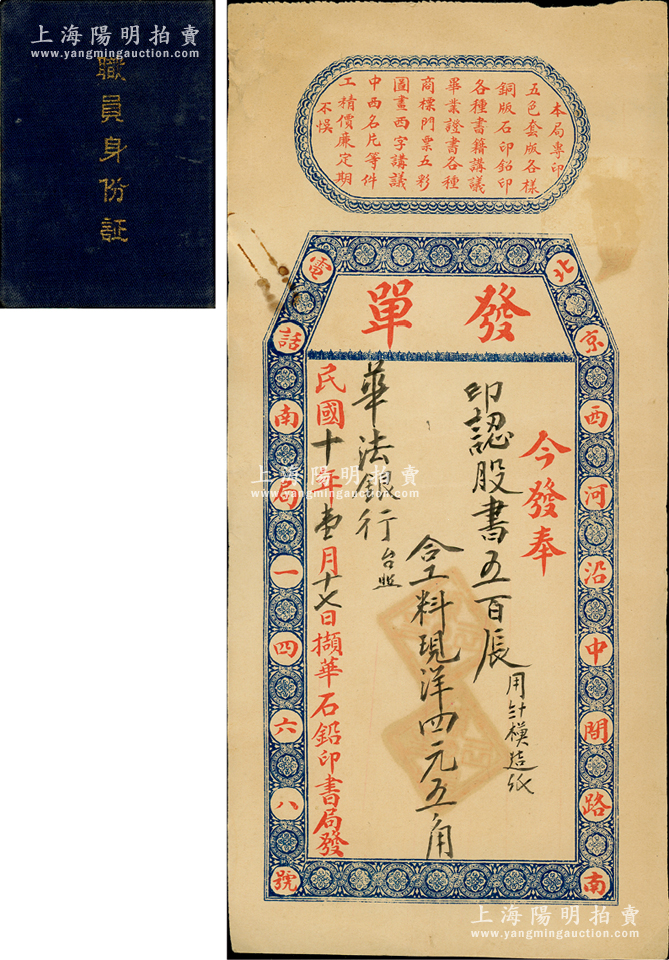 上海陽明拍賣
www.yangmingauction.com
職員身份証
上海陽明拍賣
www.yangmingauction.com
本局專印
五色套版各樣
銅版石印鉛印
各種書籍講議
畢業證書各種
商標門票五彩
圖畫西字講議
中西名片等件
工精價廉定期
不悞
發單
北京西河沿中間路南
電話南局一四六八號
今發奉
印認股書五百張
用計模造紙
合工料現洋四元五角
華法銀行台照
民國十年壹月十七日擷華石鉛印書局發
上海陽明拍賣
www.yangmingauction.com
上海陽明拍賣
www.yangmingauction.com